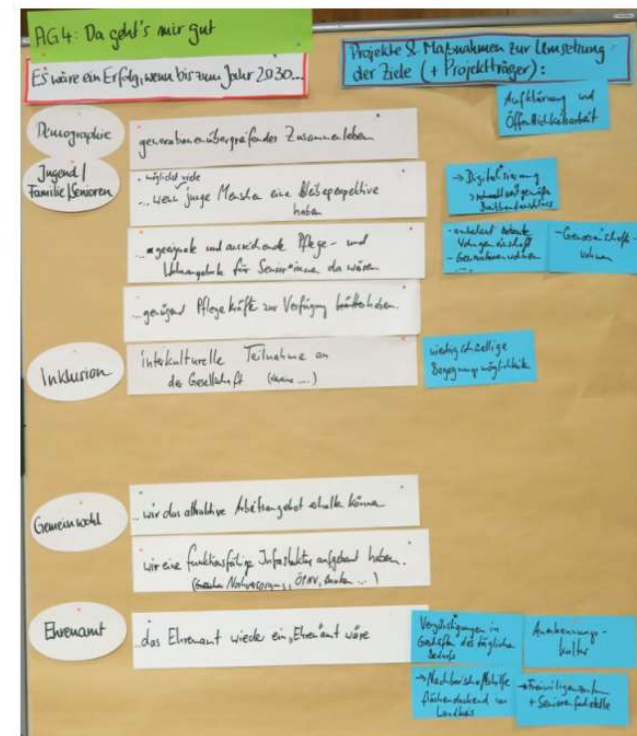 AG4: Da geht's mir gut
Es wäre ein Erfolg, wenn bis zum Jahr 2030...
Projekte & Maßnahmen zur Umsetzung
der Ziele (+ Projektträger):
Aufklärung und
Öffentlichkeitsarbeit
Demographie
generationenübergreifendes Zusammenleben
Jugend/
Familie/Senioren
möglichst viele
... wenn junge Menschen eine Bleibeperspektive
haben
→ Digitalisierung
Breitbandanschluss
... geeignete und ausreichende Pflege- und
Wohnangebote für Senior*innen da wären
- ambulant betreute
Wohngemeinschaft
- Generationenwohnen
....
- Genossenschafts-
wohnen
... genügend Pflegekräfte zur Verfügung
Inklusion
interkulturelle Teilnahme an
der Gesellschaft
niedrigschwellige
Begegnungsmöglichkeiten
Gemeinwohl
... wir das attraktive Arbeitsangebot erhalten können
wir eine funktionsfähige Infrastruktur aufgebaut haben.
Nahversorgung, ÖPNV, ... )
Ehrenamt
... das Ehrenamt wieder ein "Ehren"amt wäre
Vergünstigungen in
Geschäften des täglichen
Bedarfs
Anerkennungs-
kultur
→ Nachbarschaftshilfe
flächendeckend im
Landkreis
→ Freiwilligenzentrum
+ Seniorenfachstelle